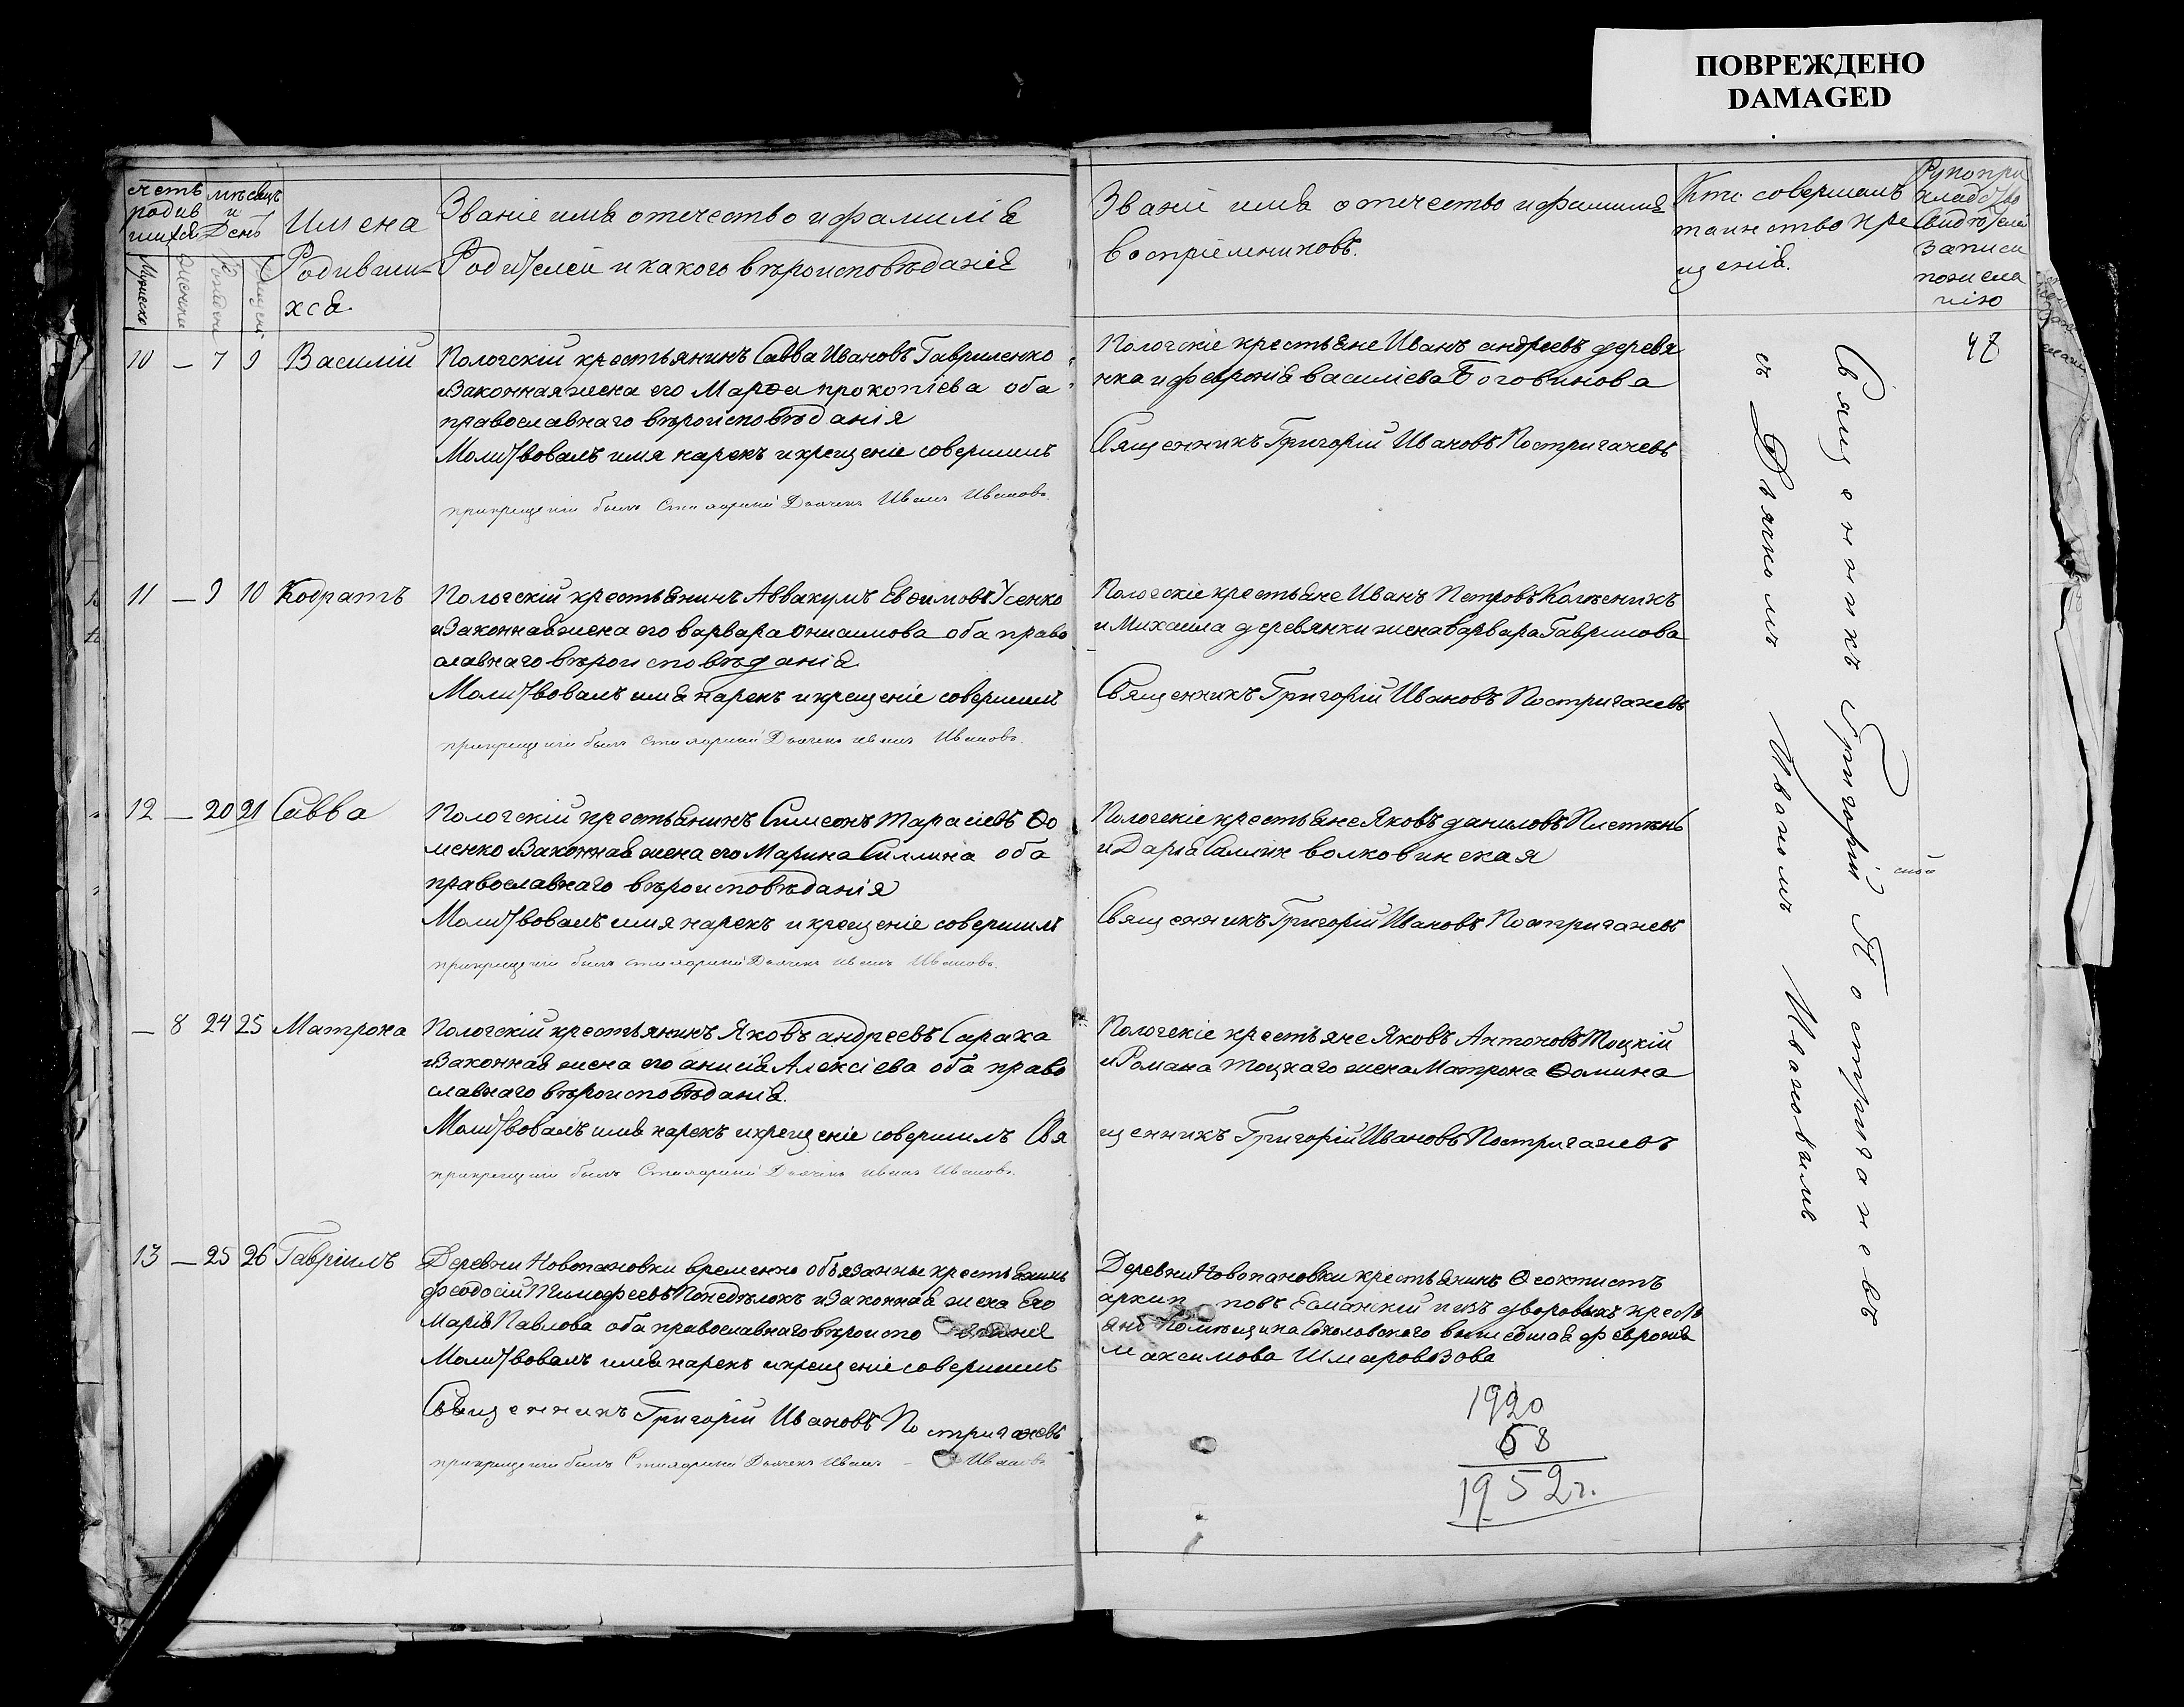 ПОВРЕЖДЕНО
DAMAGED
счетъ родив шихся
мѣсяцъ и День
Имена Родивши- хся
Званіе имя отечество и фамилія
Родителей и какого вѣроисповѣданія
Званіе имя отечество и фамилія
воспріемниковъ.
Кто совершалъ
таинство кре
щенія.
Рукопри
кладство
свидѣтелей
записи
по жела
нію
10 — 7 9 Василій
Пологскій крестьянинъ Савва Ивановъ Гавриленко
и Законная жена его Марѳа прокопіева оба
православнаго вѣроисповѣданія
Молитвовалъ имя нарекъ и крещеніе совершилъ
при крещеніи былъ Стихарный Дьячекъ Иванъ Ивановъ.
Пологскіе крестьяне Иванъ андреевъ деревя
нка и феѵронія василіева Боговинова
Священникъ Григорій Ивановъ Постригачевъ
47
11 — 9 10 Кодратъ
Пологскій крестьянинъ Аввакумъ Евѳимовъ Усенко
и Законная жена его варвара онисимова оба право
славнаго вѣроисповѣданія
Молитвовалъ имя нарекъ и крещеніе совершилъ
при крещеніи былъ стихарный Дьячекъ иванъ Ивановъ.
Пологскіе крестьяне Иванъ Петровъ
и Михаила деревянки жена варвара Гаврилова
Священникъ Григорій Ивановъ Постригачевъ
12 — 20 21 Савва
Пологскій крестьянинъ Симеонъ тарасіевъ Ѳо
менко и Законная жена его Марина Силлина оба
православнаго вѣроисповѣданія
Молитвовалъ имя нарекъ и крещеніе совершилъ
при крещеніи былъ стихарный Дьячекъ иванъ Ивановъ.
Пологскіе крестьяне Яковъ даниловъ Плетень
и Дарія волковинская
Священникъ Григорій Ивановъ Постригачевъ
— 8 24 25 Матрона
Пологскій крестьянинъ Яковъ андреевъ Сараха
и Законная жена его анисія Алексіева оба право
славнаго вѣроисповѣданія.
Молитвовалъ имя нарекъ и крещеніе совершилъ Свя
при крещеніи былъ Стихарный Дьячекъ иванъ Ивановъ.
Пологскіе крестьяне Яковъ Антоновъ Тоцкій
и Романа тоцкаго жена Матрона Ѳомина
щенникъ Григорій Ивановъ Постригачевъ
13 — 25 26 Гавріилъ
Деревни Новопановки временно обязанные крестьянинъ
феодосій Тимофеевъ Понедѣлокъ и Законная жена Его
Марія Павлова оба православнаго вѣроиспо
Молитвовалъ имя нарекъ и крещеніе совершилъ
Священникъ Григорій Ивановъ Постригачевъ
при крещеніи былъ Стихарный Дьячекъ Иванъ Ивановъ
Деревни Новопановки крестьянинъ Ѳеоктистъ
архиповъ и изъ дворовыхъ кресть
янъ Помѣщика Соколовского феѵронія
максимова Шмаровозова
1920
68
1952 г.
Священникъ Григорій Постригачевъ
съ Дьякомъ Иваномъ Ивановымъ